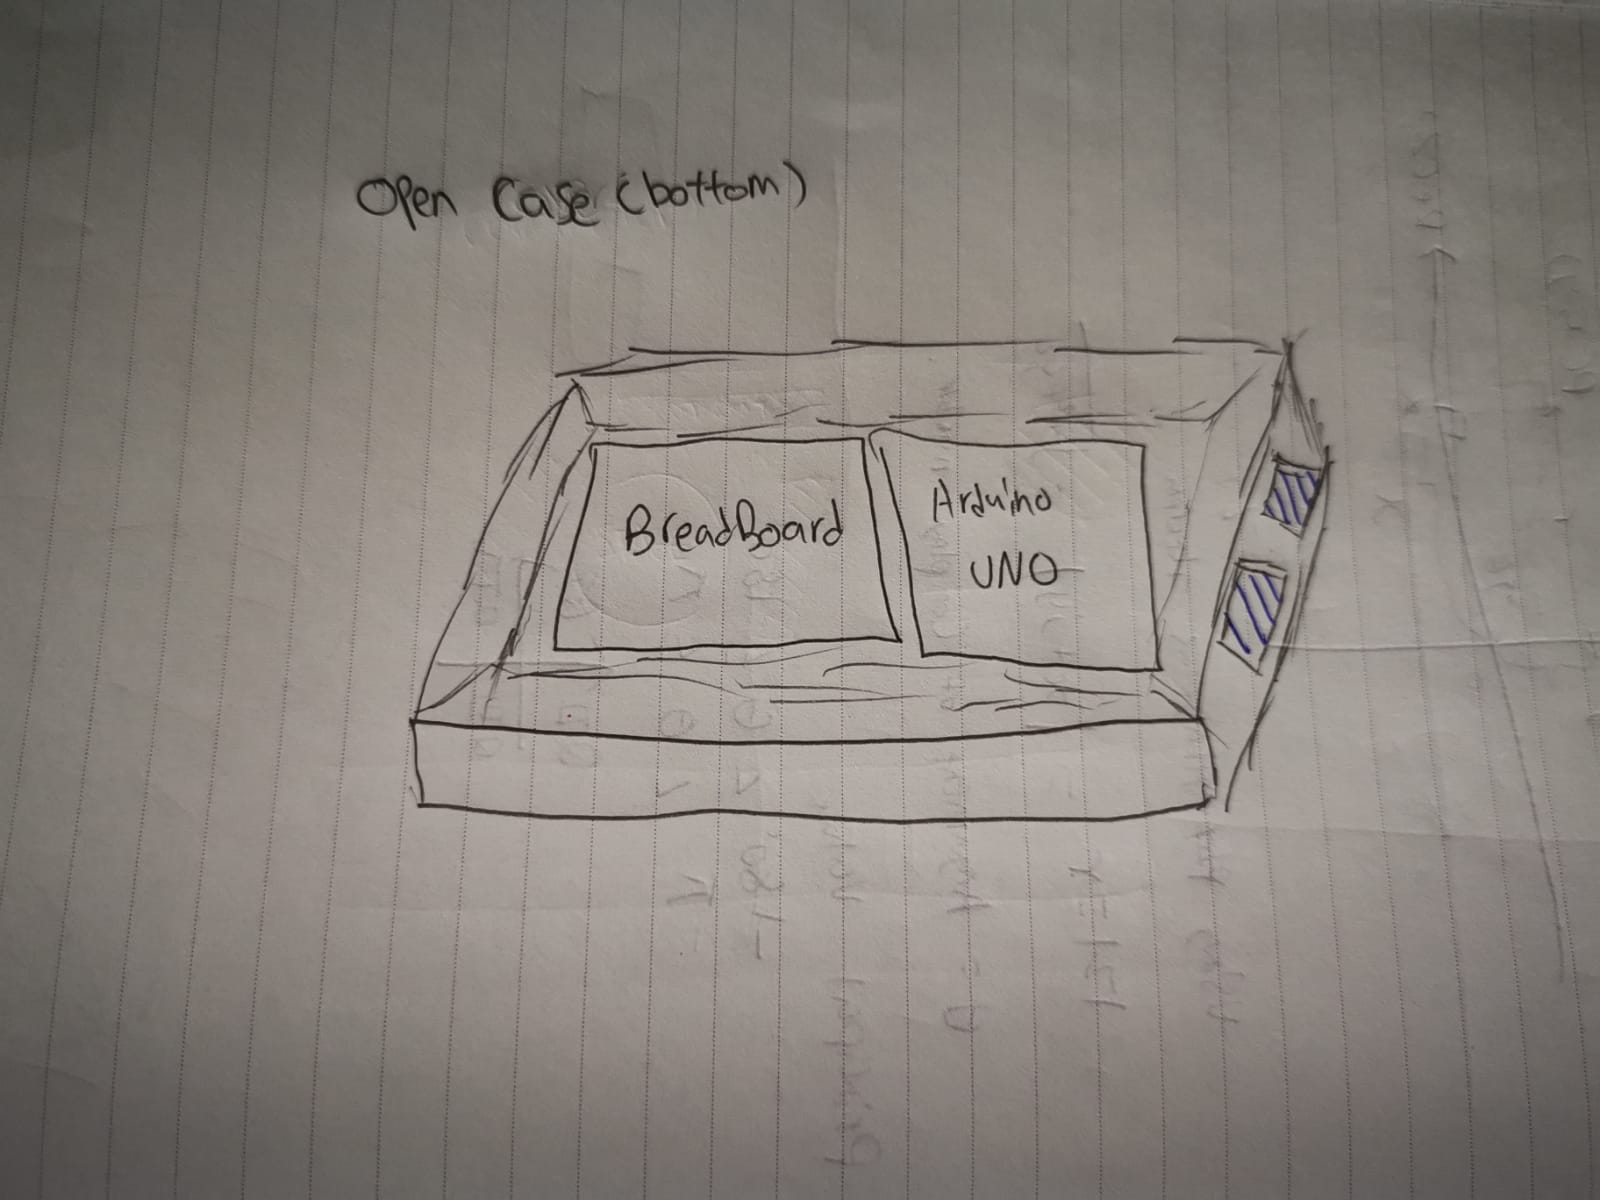 Open Case (bottom)
BreadBoard
Arduino
UNO